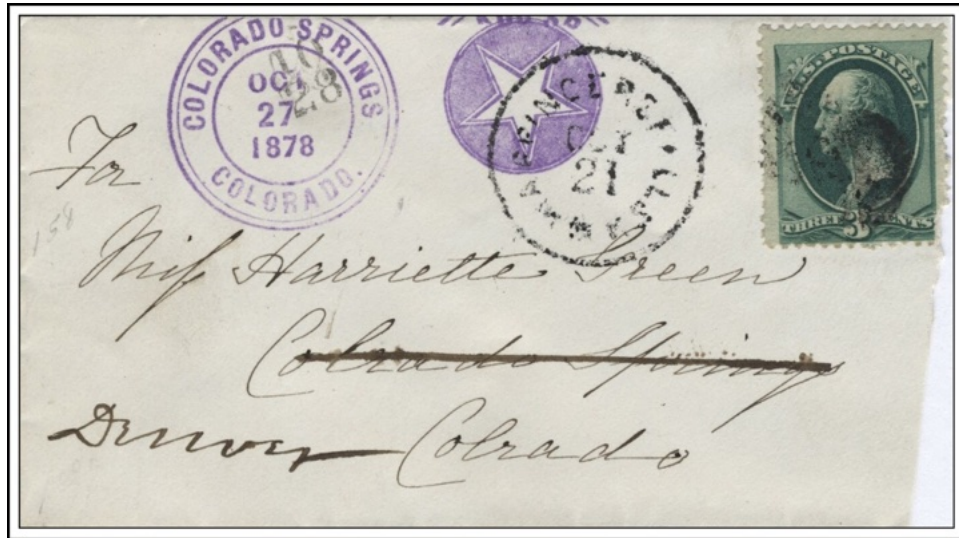 COLORADO SPRINGS
OCT
27
1878
COLORADO.
10
28
21
U.S. POSTAGE
THREE 3 CENTS
For
Miss Harriette Green
Colrado Springs
Denver Colrado